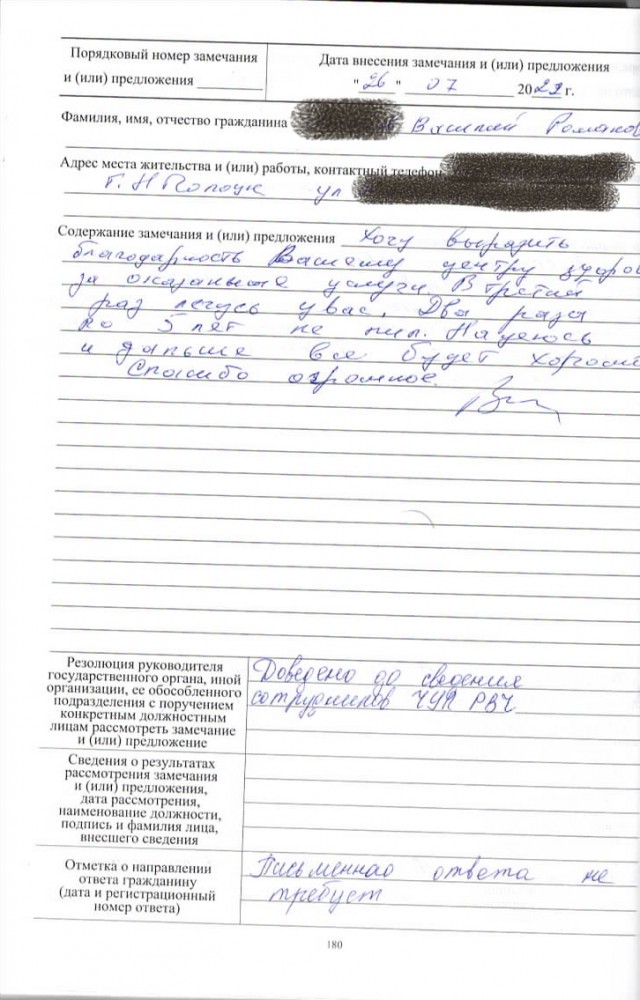 Порядковый номер замечания
и (или) предложения
Дата внесения замечания и (или) предложения
"26" 07 2022 г.
Фамилия, имя, отчество гражданина Василий Романов
Адрес места жительства и (или) работы, контактный телефон
г. Н Полоцк ул
Содержание замечания и (или) предложения Хочу выразить
благодарность Вашему центру здоров
за оказанные услуги. В третий
раз лечусь у вас. Два раза
по 5 лет не пил. Надеюсь
и дальше все будет хорошо
Спасибо огромное.
Резолюция руководителя
государственного органа, иной
организации, ее обособленного
подразделения с поручением
конкретным должностным
лицам рассмотреть замечание
и (или) предложение
Доведено до сведения
сотрудников ЧУП РВЧ
Сведения о результатах
рассмотрения замечания
и (или) предложения,
дата рассмотрения,
наименование должности,
подпись и фамилия лица,
внесшего сведения
Отметка о направлении
ответа гражданину
(дата и регистрационный
номер ответа)
Письменнао ответа не
требует
180